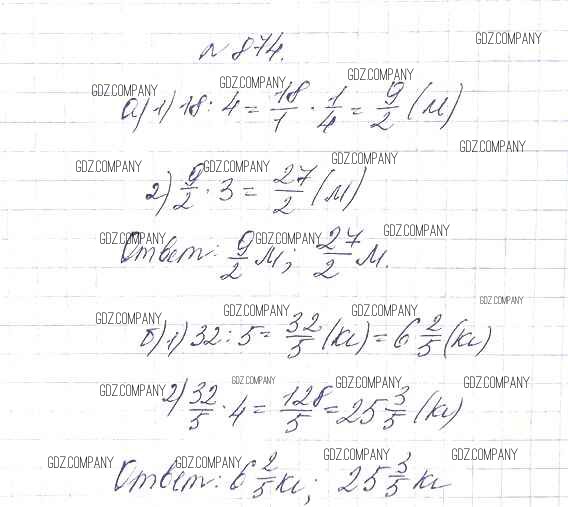 № 874.
GDZ.COMPANY
GDZ.COMPANY GDZ.COMPANY GDZ.COMPANY
а) 1) 18 : 4 = 18/1 · 1/4 = 9/2 (м)
GDZ.COMPANY
GDZ.COMPANY GDZ.COMPANY GDZ.COMPANY
2) 9/2 · 3 = 27/2 (м)
GDZ.COMPANY GDZ.COMPANY GDZ.COMPANY
Ответ: 9/2 м; 27/2 м.
GDZ.COMPANY
GDZ.COMPANY GDZ.COMPANY GDZ.COMPANY
б) 1) 32 : 5 = 32/5 (кг) = 6 2/5 (кг)
GDZ.COMPANY GDZ.COMPANY GDZ.COMPANY GDZ.COMPANY
2) 32/5 · 4 = 128/5 = 25 3/5 (кг)
GDZ.COMPANY GDZ.COMPANY GDZ.COMPANY GDZ.COMPANY
Ответ: 6 2/5 кг; 25 3/5 кг